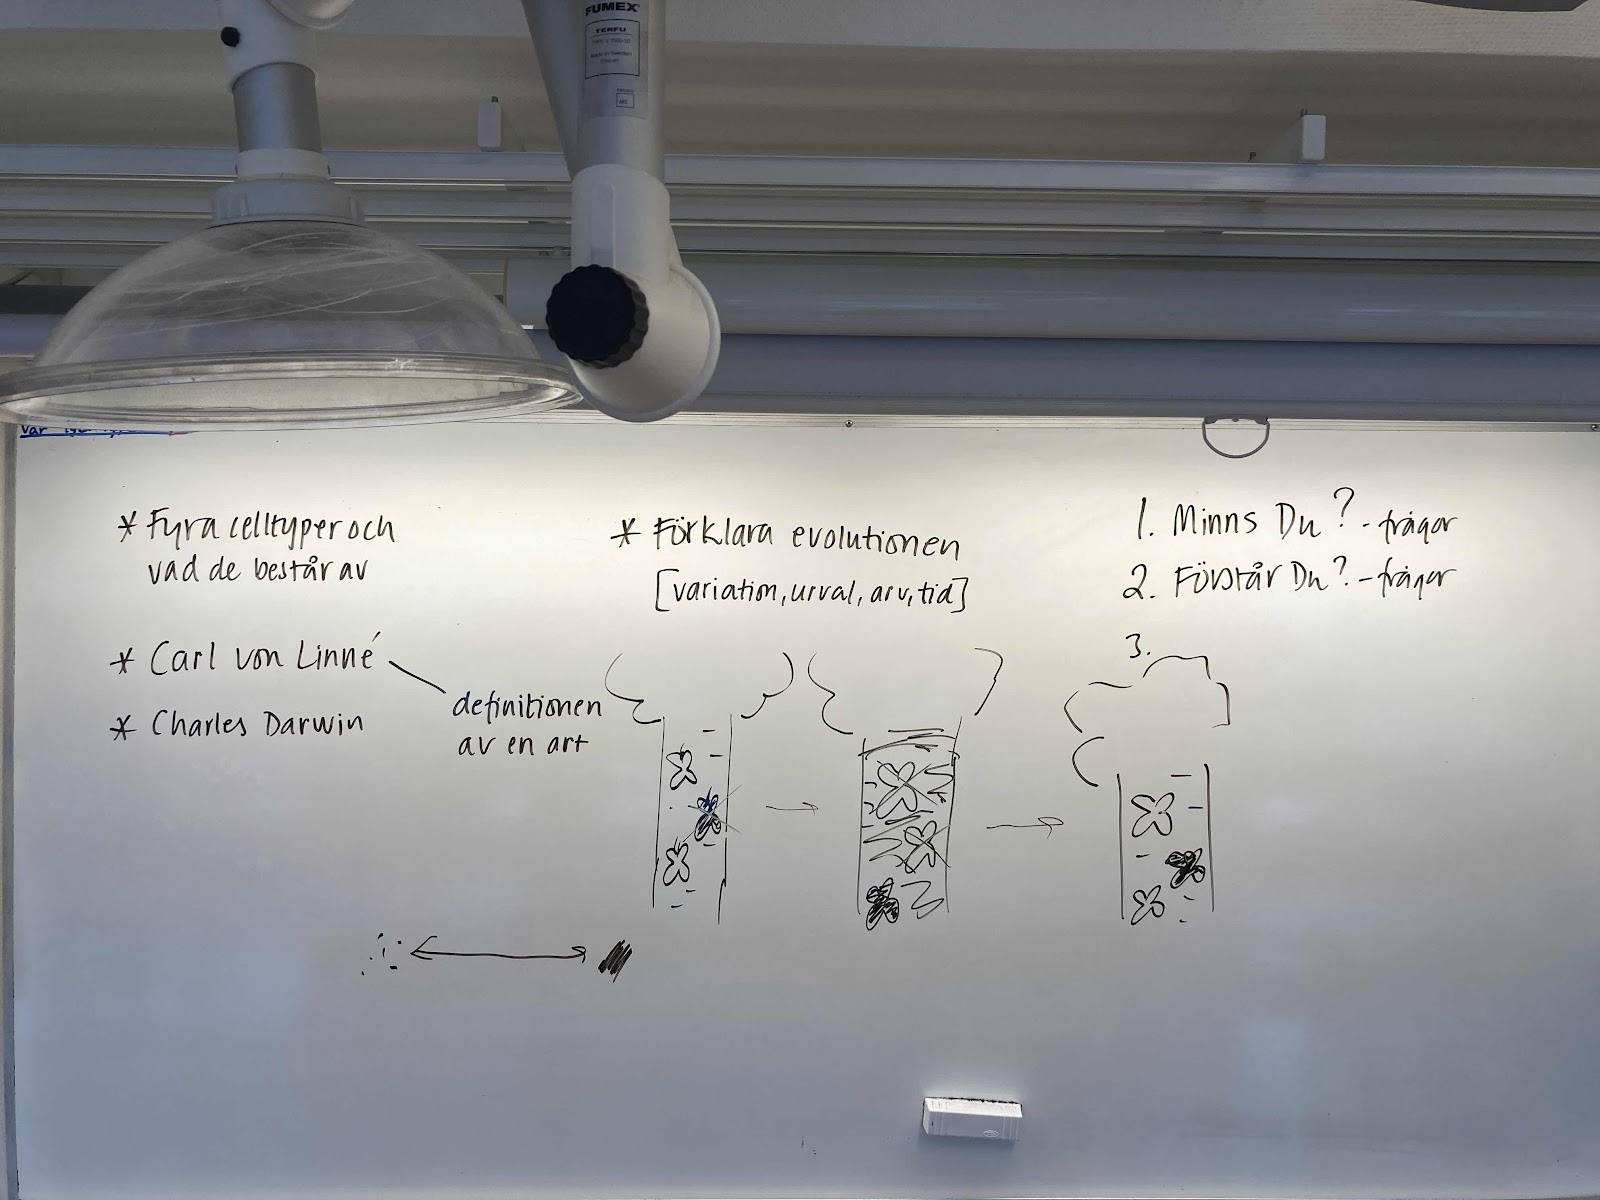 FUMEX
TERFU
* Fyra celltyper och
vad de består av
* Carl von Linné
definitionen
av en art
* Charles Darwin
* Förklara evolutionen
[variation, urval, arv, tid]
1. Minns Du? - frågor
2. Förstår Du? - frågor
3.